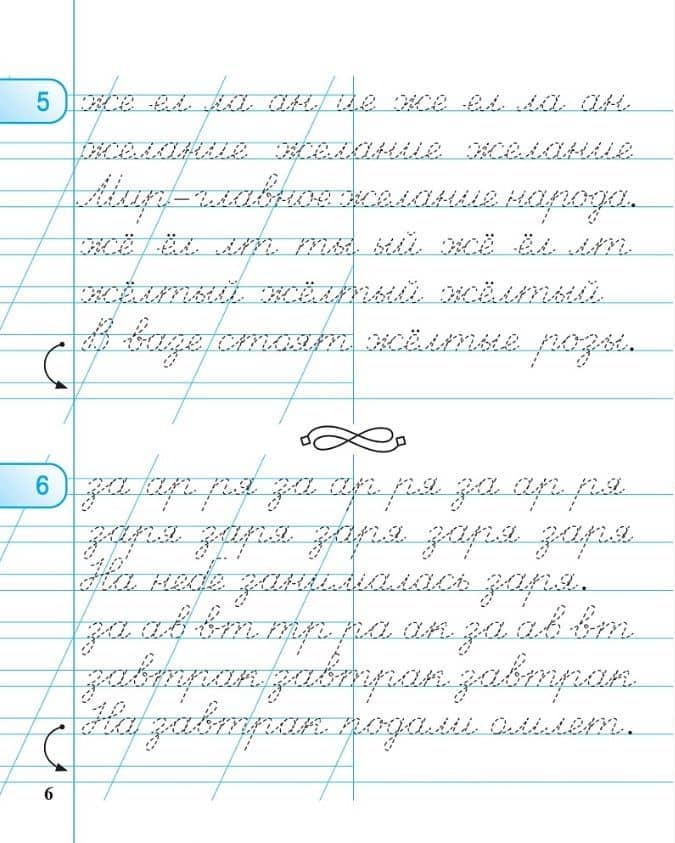 5
же ел ла ан ие же ел ла ан
желание желание желание
Мир – главное желание народа.
жё ёл лт ты ый жё ёл лт
жёлтый жёлтый жёлтый
В вазе стоят жёлтые розы.
6
за ар ря за ар ря за ар ря
заря заря заря заря заря
На небе занималась заря.
за ав вт тр ра ак за ав вт
завтрак завтрак завтрак
На завтрак подали омлет.
6